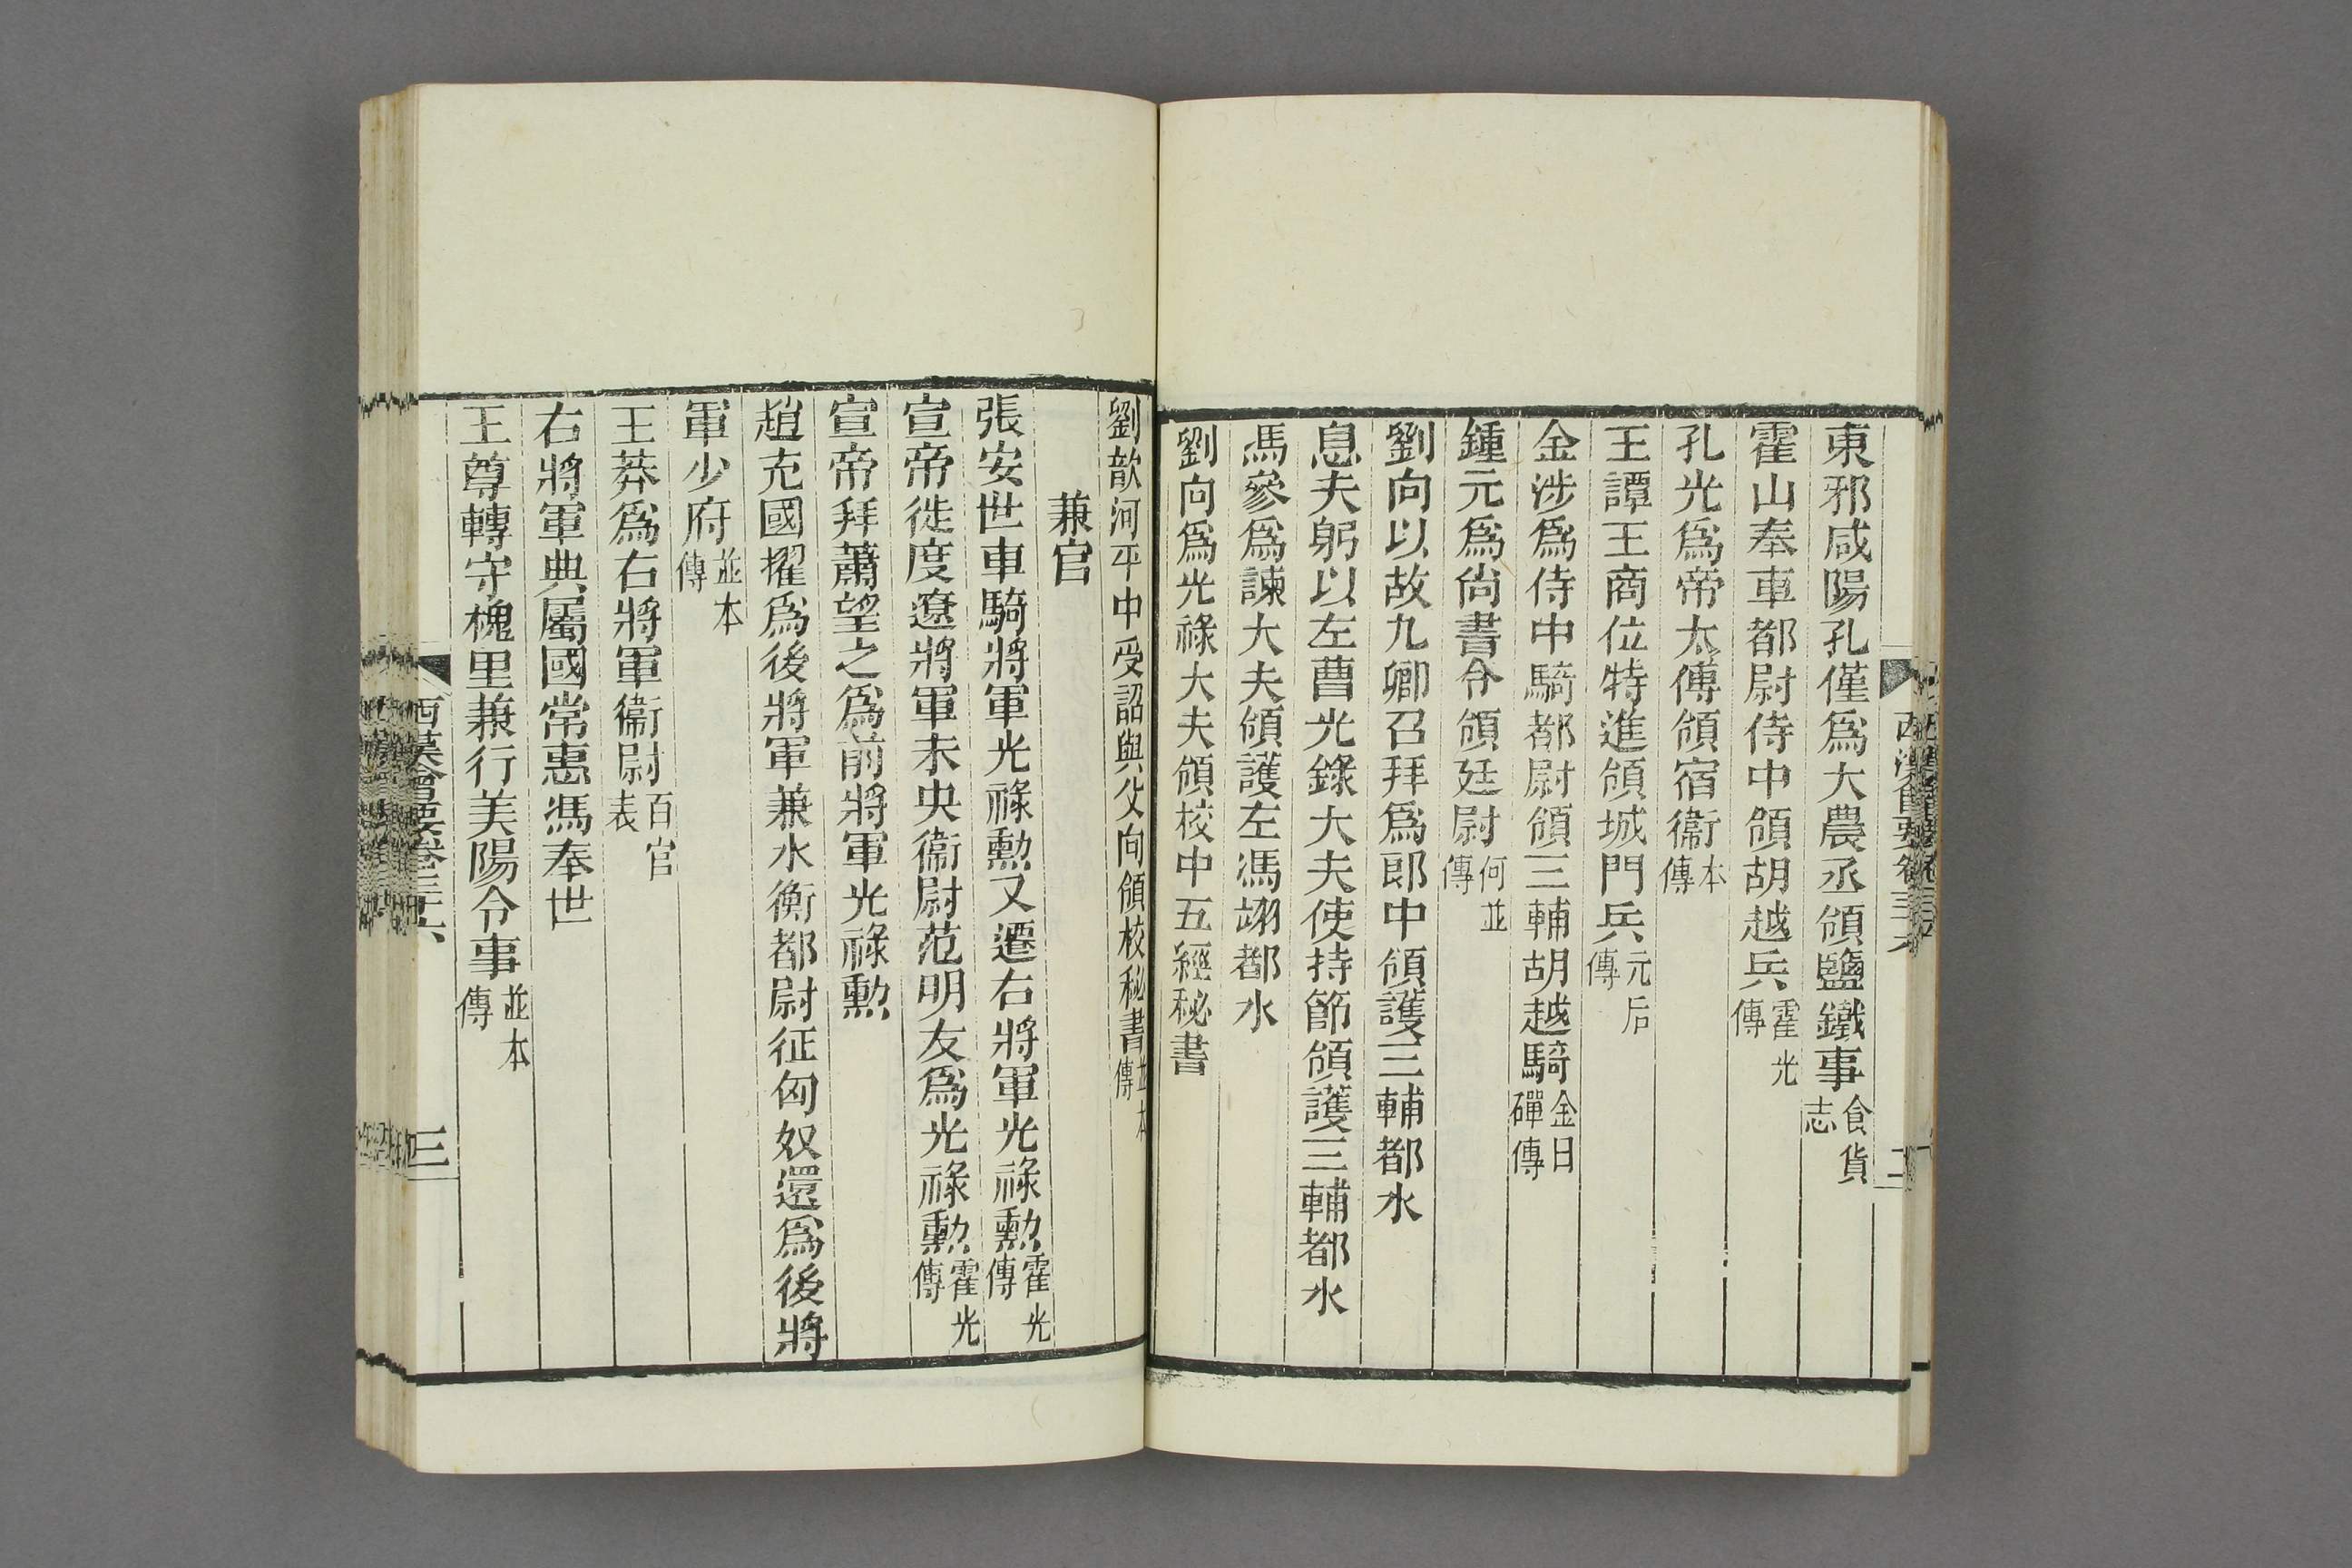 東邪咸陽孔僅爲大農丞領鹽鐵事食貨志
霍山奉車都尉侍中領胡越兵霍光傳
孔光爲帝太傅領宿衞本傳
王譚王商位特進領城門兵元后傳
金涉爲侍中騎都尉領三輔胡越騎金日磾傳
鍾元爲尙書令領廷尉何並傳
劉向以故九卿召拜爲郎中領護三輔都水
息夫躬以左曹光錄大夫使持節領護三輔都水
馬參爲諫大夫領護左馮翊都水
劉向爲光祿大夫領校中五經秘書
劉歆河平中受詔與父向領校秘書並本傳
兼官
張安世車騎將軍光祿勳又遷右將軍光祿勳霍光傳
宣帝徙度遼將軍未央衞尉范明友爲光祿勳霍光傳
宣帝拜蕭望之爲前將軍光祿勳
趙充國擢爲後將軍兼水衡都尉征匈奴還爲後將
軍少府並本傳
王莽爲右將軍衞尉百官表
右將軍典屬國常惠馮奉世
王尊轉守槐里兼行美陽令事並本傳
西漢會要卷三十六
三